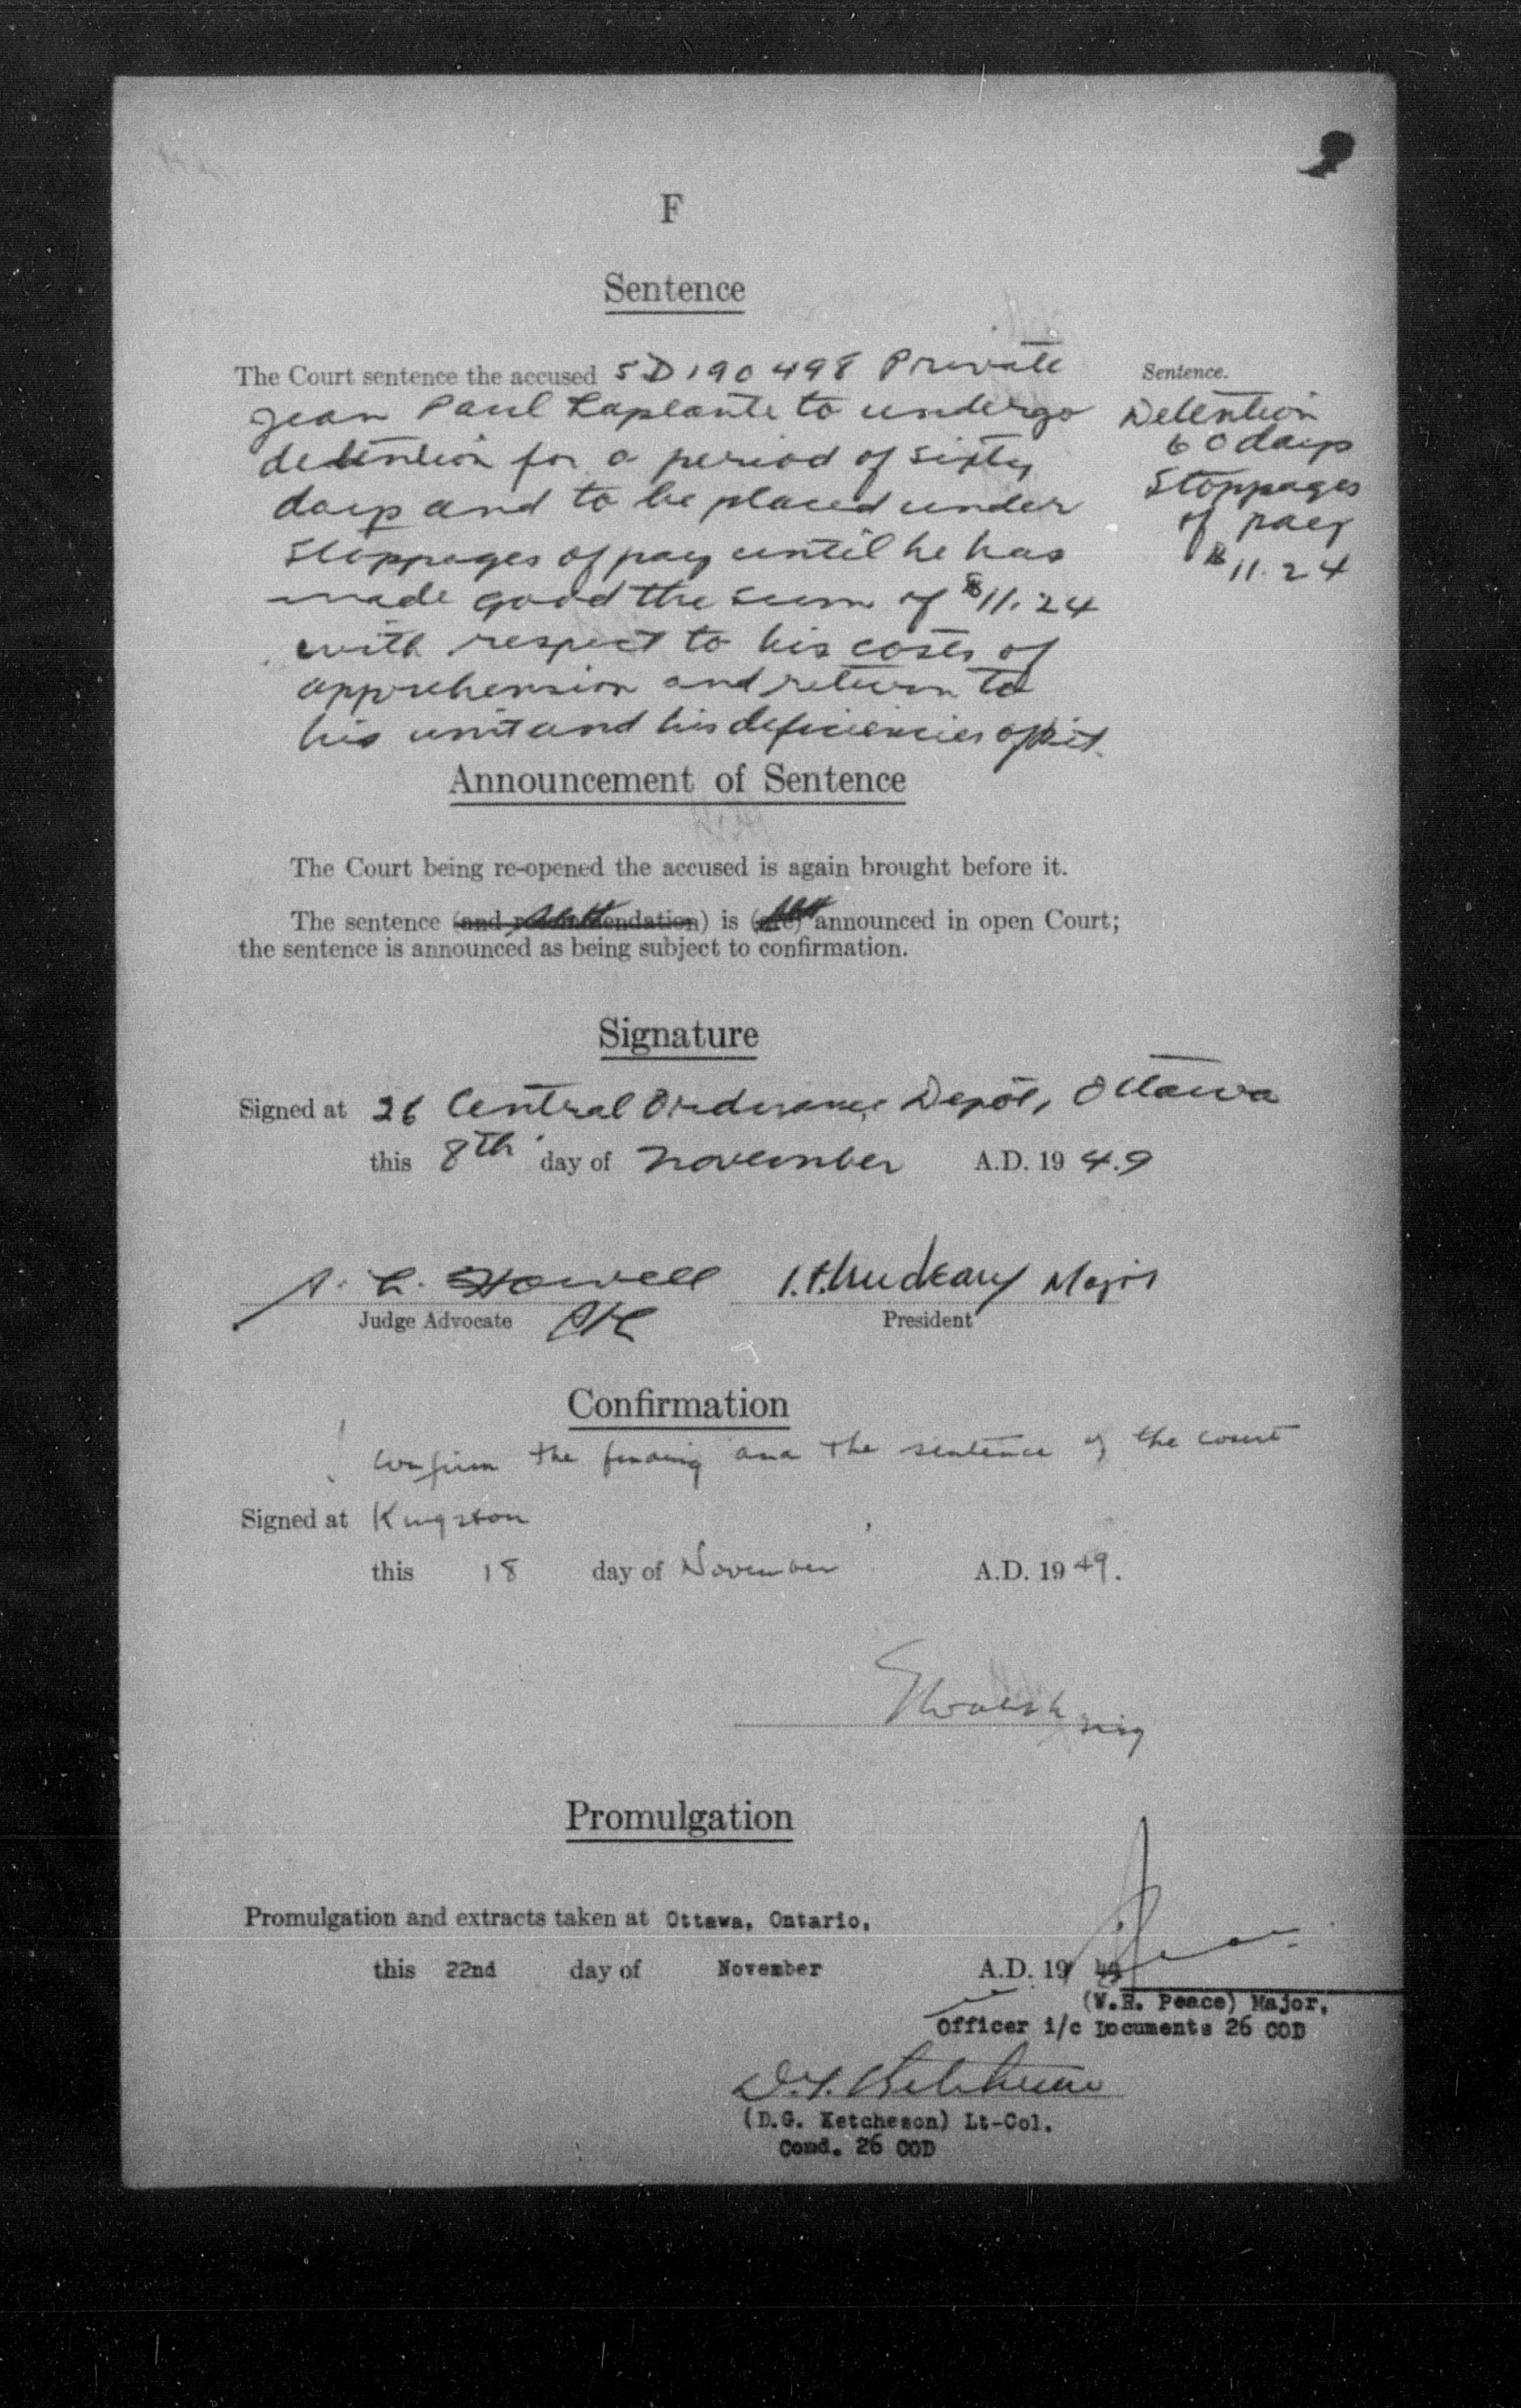 F
Sentence
The Court sentence the accused 5D190498 Private
Jean Paul Laplante to undergo
detention for a period of sixty
days and to be placed under
stoppages of pay until he has
made good the sum of $11.24
with respect to his costs of
apprehension and return to
his unit and his deficiencies of kit.
Sentence.
Detention
60 days
Stoppages
of pay
$11.24
Announcement of Sentence
The Court being re-opened the accused is again brought before it.
The sentence (and recommendation) is (are) announced in open Court;
the sentence is announced as being subject to confirmation.
Signature
Signed at 26 Central Ordnance Depot, Ottawa
this 8th day of November A.D. 1949
Howell Major
Judge Advocate President
Confirmation
confirm the finding and the sentence of the court
Signed at Kingston
this 18 day of November A.D. 1949.
Promulgation
Promulgation and extracts taken at Ottawa, Ontario,
this 22nd day of November A.D. 19 49
(W.R. Peace) Major,
Officer i/c Documents 26 COD
(D.G. Ketcheson) Lt-Col.
Comd. 26 COD